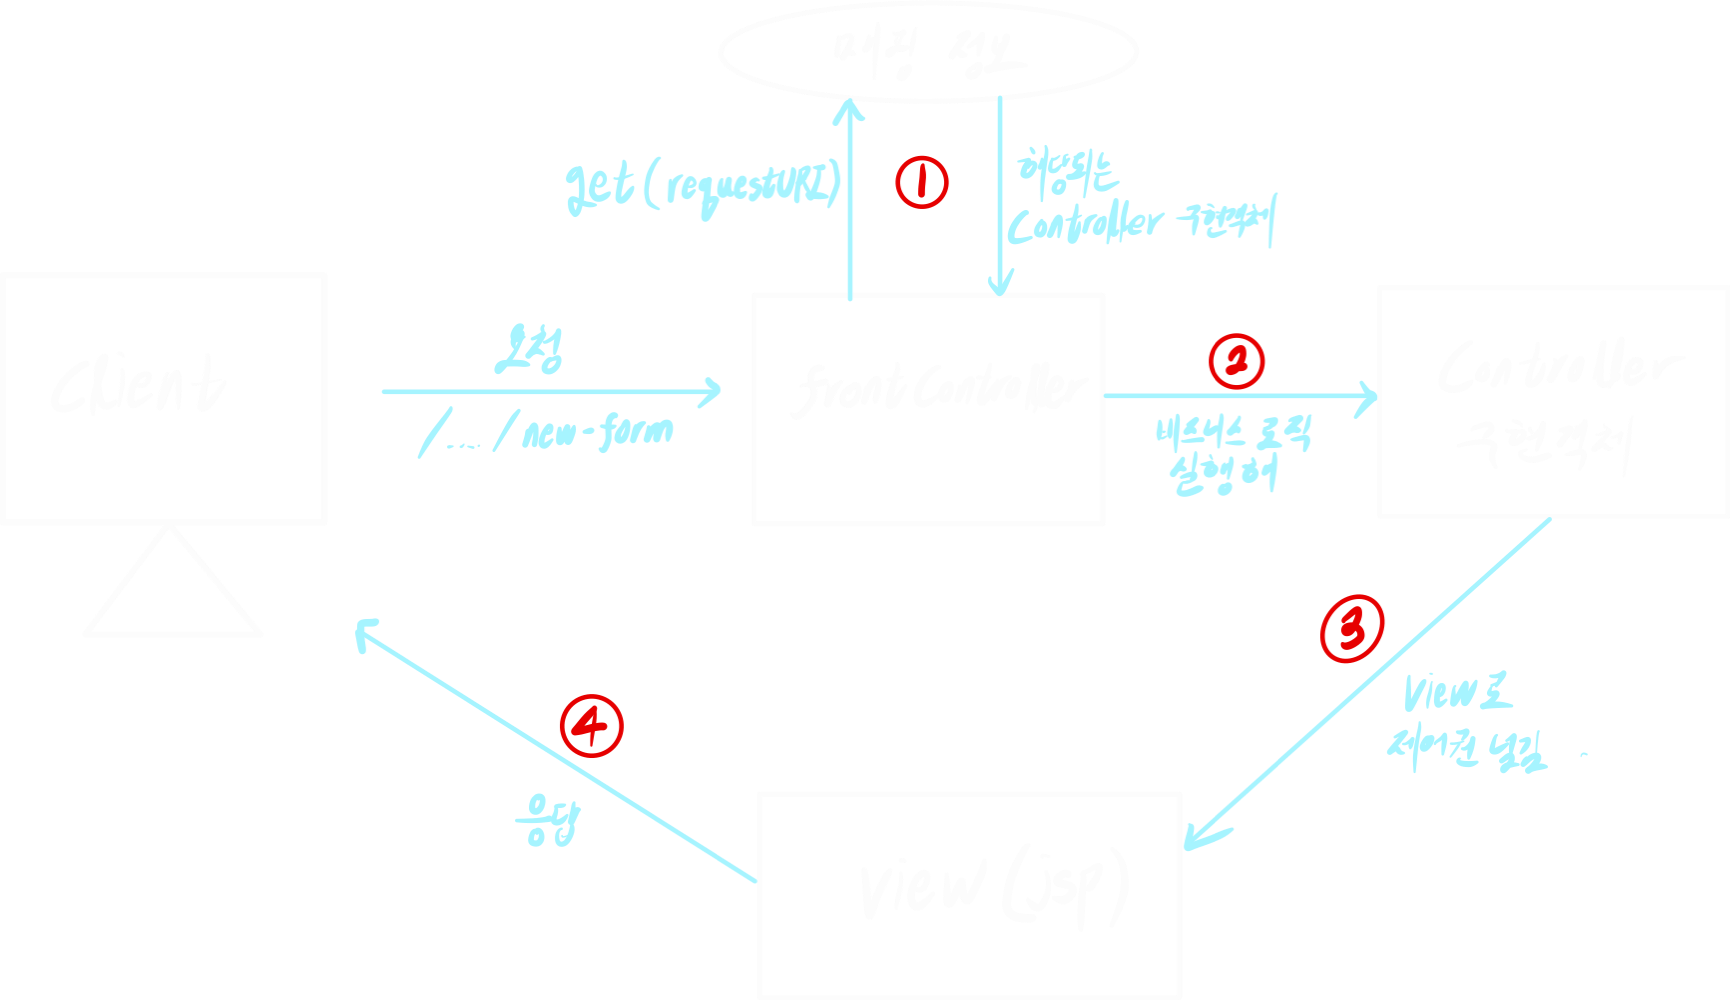 매핑 정보
get(requestURI)
①
해당되는
Controller 구현객체
Client
요청
/..../new-form
front Controller
②
비즈니스 로직
실행해
Controller
구현객체
③
View로
제어권 넘김
④
응답
View (jsp)